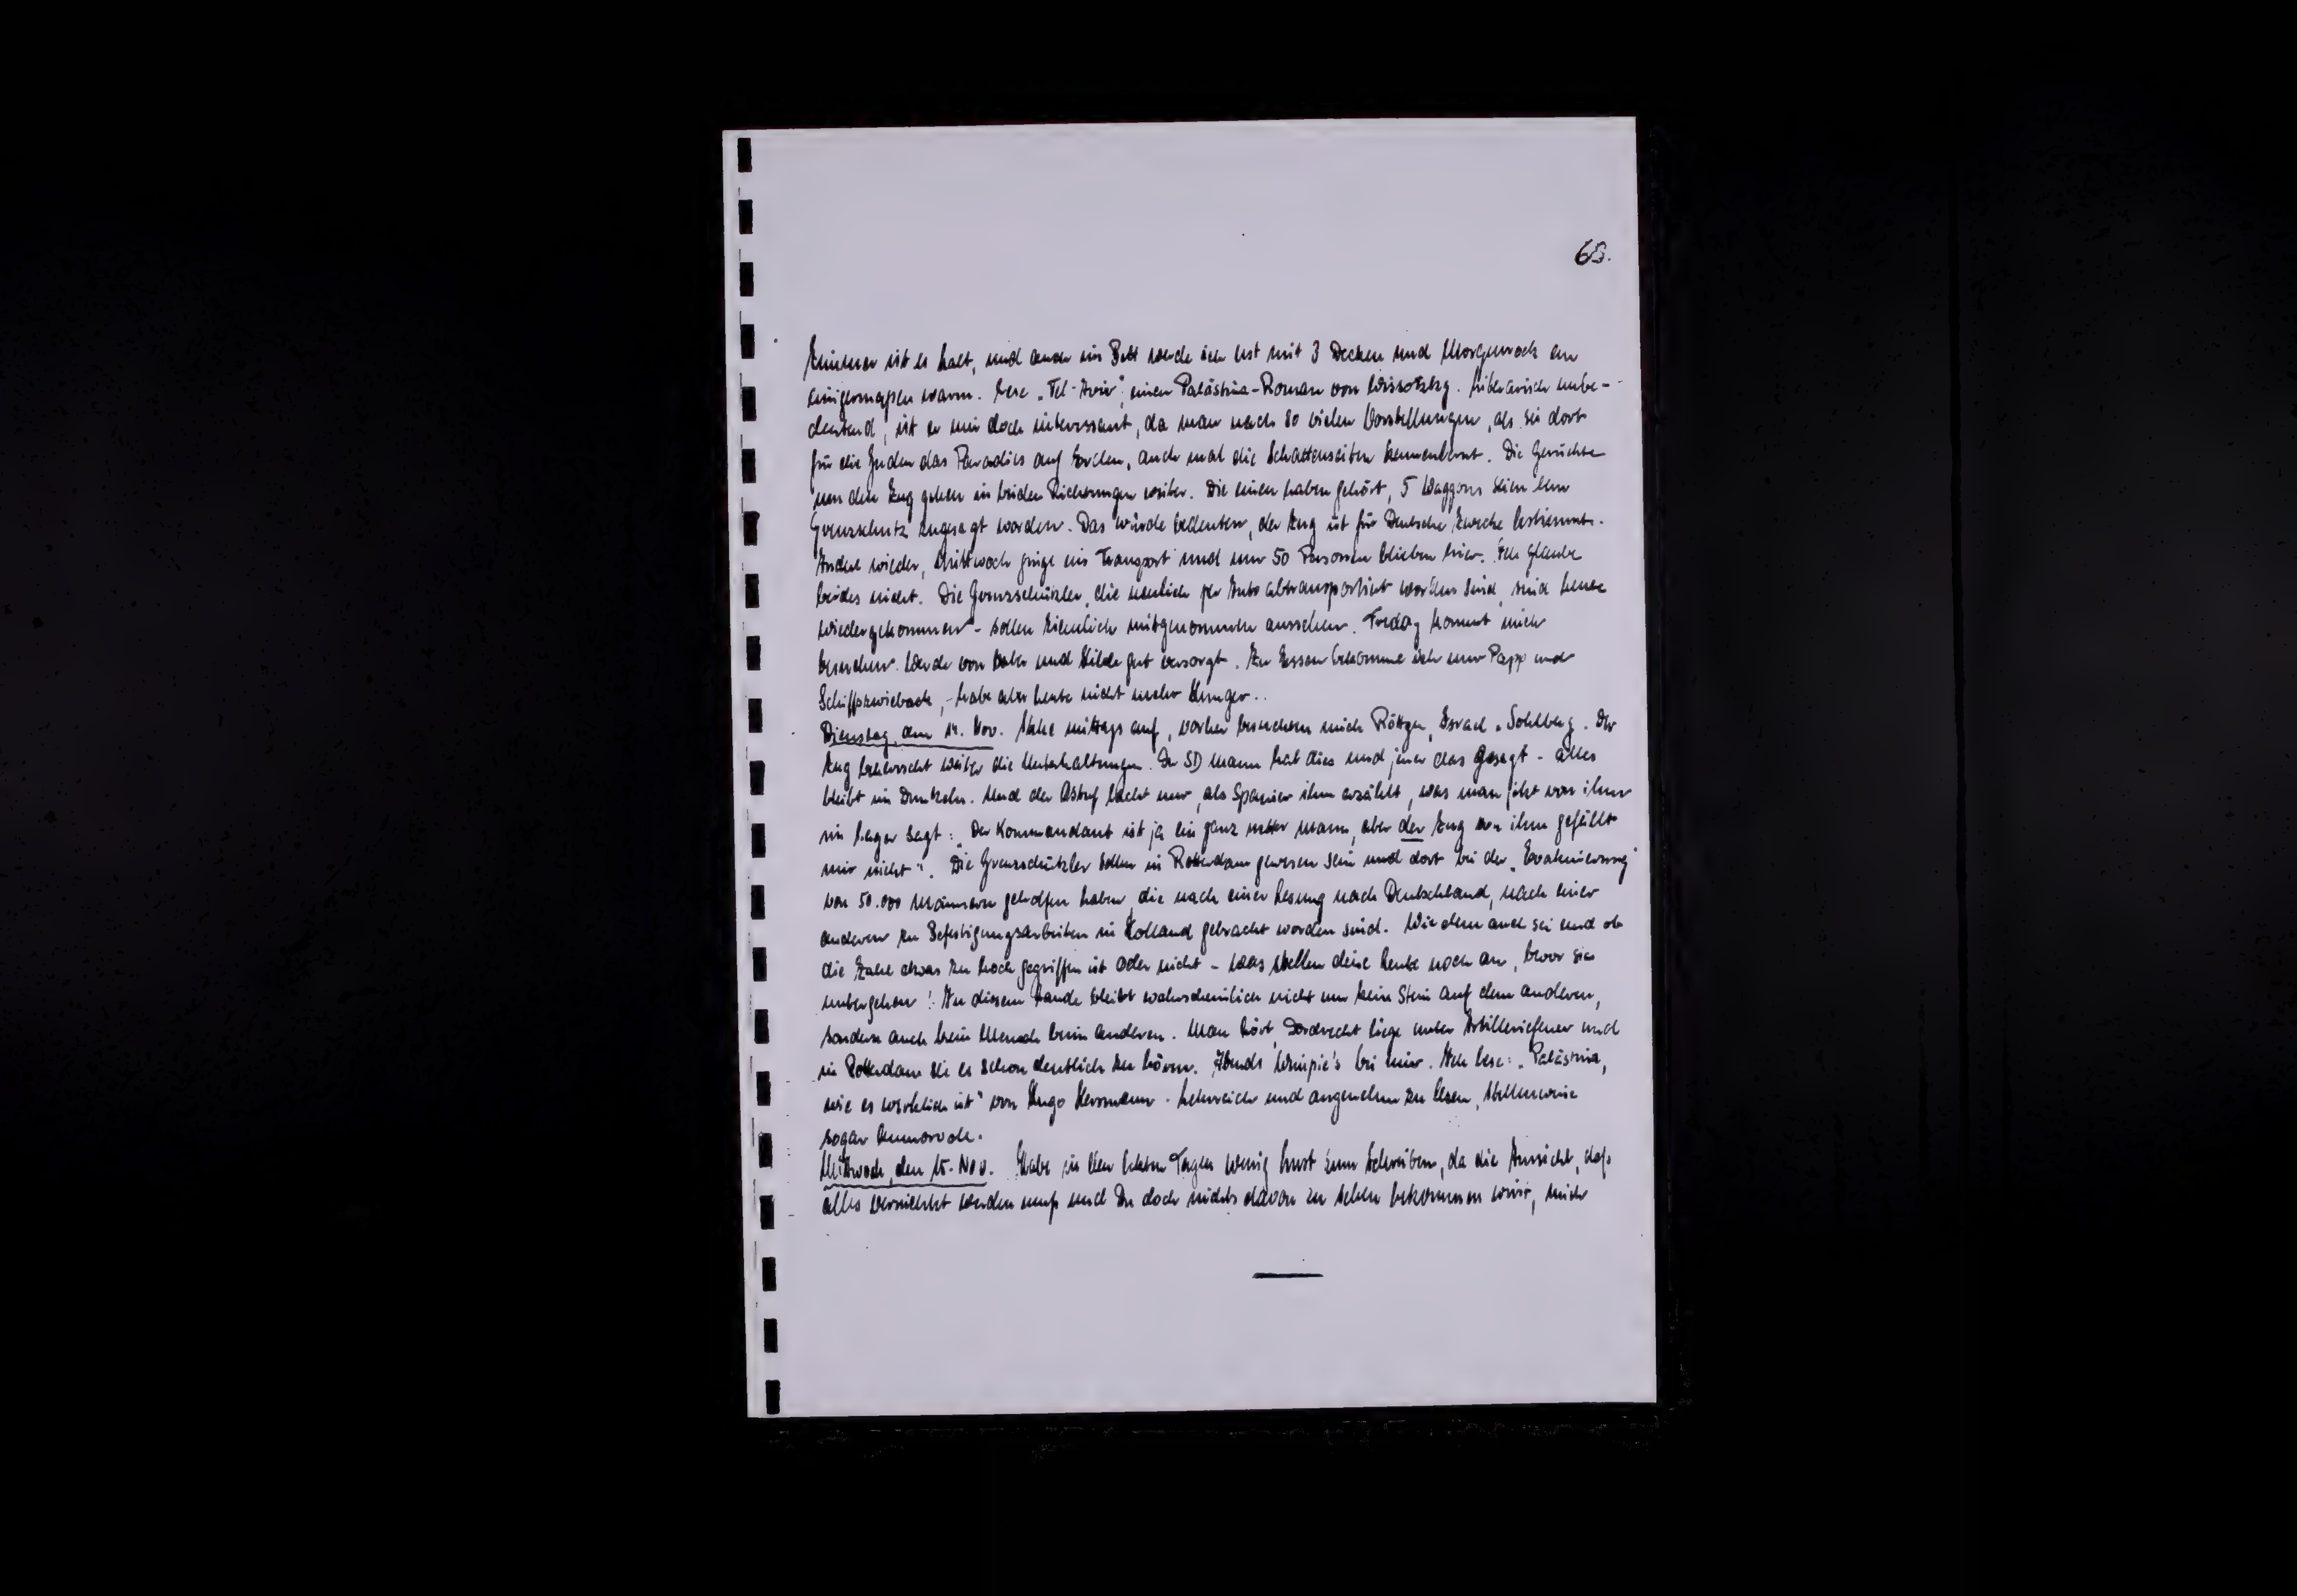 68.
Zimmer ist es kalt, und auch im Bett werde ich erst mit 3 Decken und Morgenrock an
einigermaßen warm. Lese „Tel-Aviv", einen Palästina-Roman von Wissotzky. Literarisch unbe-
deutend, ist er mir doch interessant, da man nach so vielen Vorstellungen, als sei dort
für die Juden das Paradies auf Erden, auch mal die Schattenseiten kennenlernt. Die Gerüchte
um den Zug gehen in beiden Richtungen weiter. Die einen haben gehört, 5 Waggons seien dem
Grenzschutz zugesagt worden. Das würde bedeuten, der Zug ist für Deutsche Zwecke bestimmt.
Andere wieder, Mittwoch ginge ein Transport und nur 50 Personen blieben hier. Ich glaube
beides nicht. Die Grenzschützler, die neulich per Auto abtransportiert worden sind, sind heute
wiedergekommen - sollen ziemlich mitgenommen aussehen. Freddy kommt mich
besuchen. Werde von und Hilde gut versorgt. Zu Essen bekomme ich nur Papp und
Schiffszwieback, - habe aber heute nicht mehr Hunger..
Dienstag, den 14. Nov. Stehe mittags auf, vorher besuchen mich Röttgen, Israel, Sohlberg. Der
Zug beherrscht weiter die Unterhaltungen. Der SD Mann hat dies und jener das gesagt - alles
bleibt im Dunkeln. Und der Ostuf lacht nur, als Spanier ihm erzählt, was man jetzt von ihm
im Lager sagt: „Der Kommandant ist ja ein ganz netter Mann, aber der Zug von ihm gefällt
mir nicht". Die Grenzschützler sollen in Rotterdam gewesen sein und dort bei der „Evakuierung"
von 50.000 Männern geholfen haben, die nach einer Lesung nach Deutschland, nach einer
anderen zu Befestigungsarbeiten in Holland gebracht worden sind. Wie dem auch sei und ob
die Zahl etwas zu hoch gegriffen ist oder nicht - was stellen diese Leute noch an, bevor sie
untergehen! In diesem Lande bleibt wahrscheinlich nicht nur kein Stein auf dem anderen,
sondern auch kein Mensch beim anderen. Man hört, Dordrecht liege unter Artilleriefeuer und
in Rotterdam sei es schon deutlich zu hören. Abends Wimpie's bei mir. Ich lese: „Palästina,
wie es wirklich ist" von Hugo Herrmann - lehrreich und angenehm zu lesen, stellenweise
sogar humorvoll.
Mittwoch, den 15. Nov. Habe in den letzten Tagen wenig Lust zum Schreiben, da die Aussicht, daß
alles vernichtet werden muß und Du doch nichts davon zu sehen bekommen wirst, mich